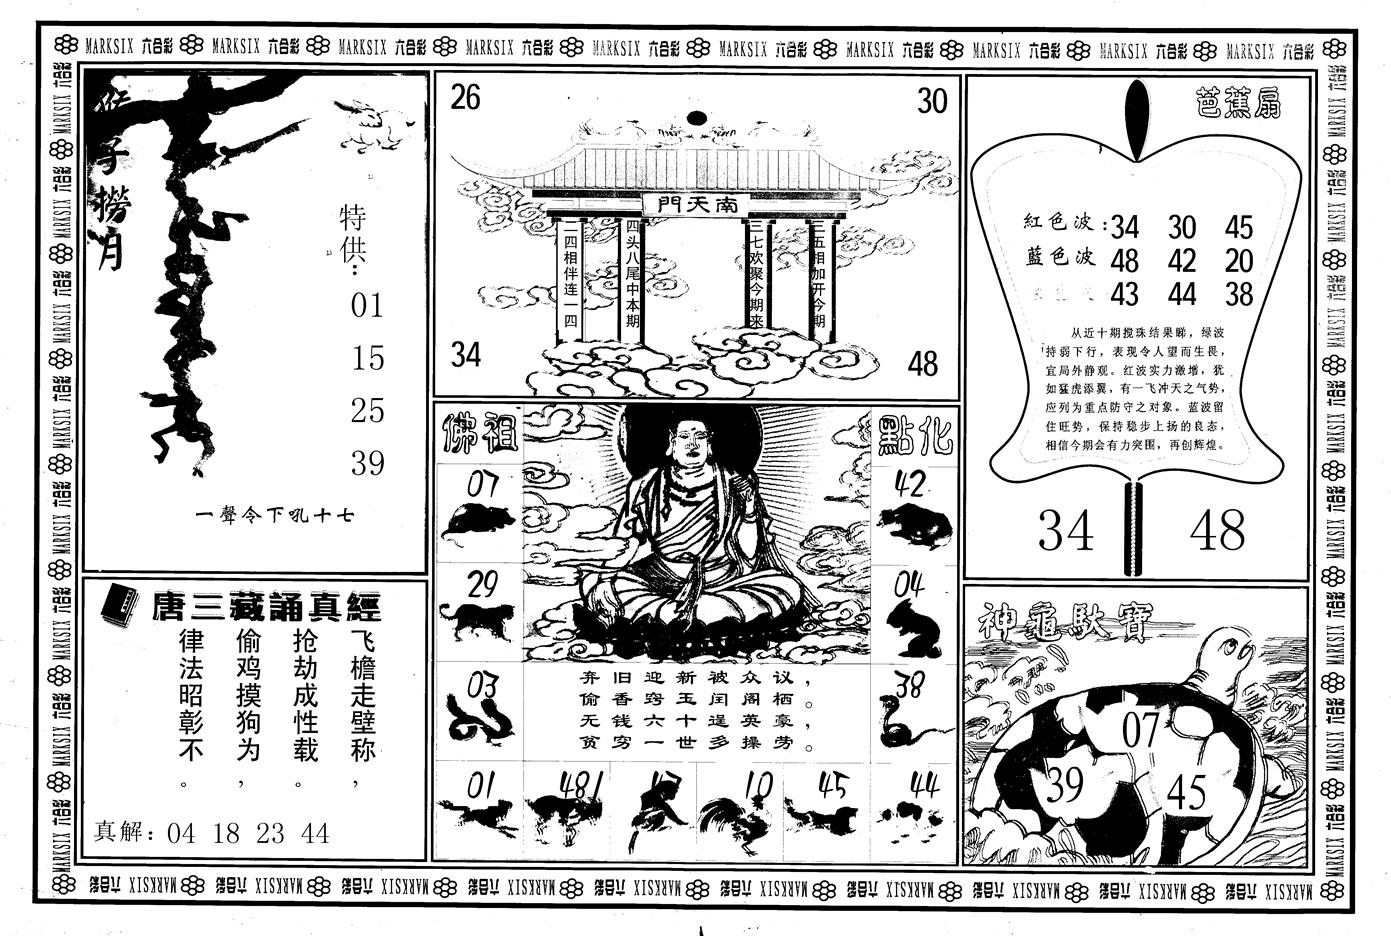 MARKSIX 六合彩 MARKSIX 六合彩 MARKSIX 六合彩 MARKSIX 六合彩 MARKSIX 六合彩 MARKSIX 六合彩 MARKSIX 六合彩 MARKSIX 六合彩 MARKSIX 六合彩 MARKSIX 六合彩
猴子撈月
特供：
01
15
25
39
一聲令下吼十七
唐三藏誦真經
飞檐走壁称，
抢劫成性载。
偷鸡摸狗为，
律法昭彰不。
真解：04 18 23 44
26
30
門天南
二四相伴连一四
四头八尾中本期
三七欢聚今期来
三五相加开今期
34
48
佛祖
點化
07
42
29
04
03
38
弃旧迎新被众议，
偷香窃玉闰阁栖。
无钱六十逞英豪，
贫穷一世多操劳。
01
48
10
45
44
芭蕉扇
紅色波：34 30 45
藍色波 48 42 20
43 44 38
从近十期搅珠结果睇，绿波
持弱下行，表现令人望而生畏，
宜局外静观。红波实力激增，犹
如猛虎添翼，有一飞冲天之气势，
应列为重点防守之对象。蓝波留
住旺势，保持稳步上扬的良态，
相信今期会有力突围，再创辉煌。
34
48
神龜馱寶
07
39
45
MARKSIX 六合彩 MARKSIX 六合彩 MARKSIX 六合彩 MARKSIX 六合彩 MARKSIX 六合彩 MARKSIX 六合彩 MARKSIX 六合彩 MARKSIX 六合彩 MARKSIX 六合彩 MARKSIX 六合彩